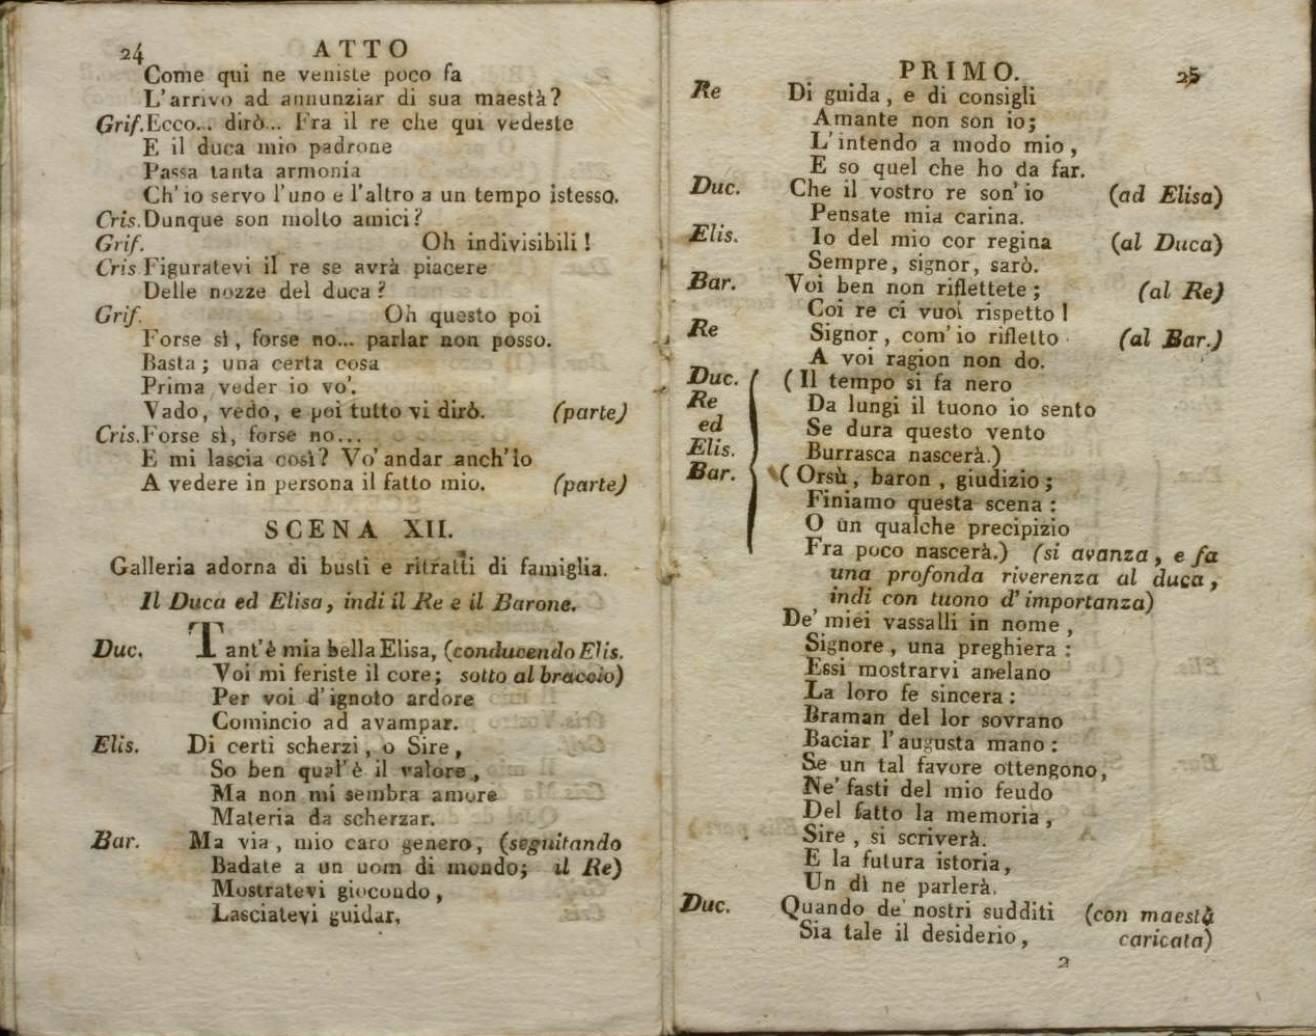 24 ATTO
Come qui ne veniste poco fa
L'arrivo ad annunziar di sua maestà?
Grif. Ecco... dirò... Fra il re che qui vedeste
E il duca mio padrone
Passa tanta armonia
Ch'io servo l'uno e l'altro a un tempo istesso.
Cris. Dunque son molto amici?
Grif. Oh indivisibili!
Cris Figuratevi il re se avrà piacere
Delle nozze del duca?
Grif. Oh questo poi
Forse sì, forse no... parlar non posso.
Basta; una certa cosa
Prima veder io vo'.
Vado, vedo, e poi tutto vi dirò. (parte)
Cris. Forse sì, forse no...
E mi lascia così? Vo' andar anch'io
A vedere in persona il fatto mio. (parte)
SCENA XII.
Galleria adorna di busti e ritratti di famiglia.
Il Duca ed Elisa, indi il Re e il Barone.
Duc. Tant'è mia bella Elisa, (conducendo Elis.
Voi mi feriste il core; sotto al braccio)
Per voi d'ignoto ardore
Comincio ad avampar.
Elis. Di certi scherzi, o Sire,
So ben qual'è il valore,
Ma non mi sembra amore
Materia da scherzar.
Bar. Ma via, mio caro genero, (seguitando
Badate a un uom di mondo; il Re)
Mostratevi giocondo,
Lasciatevi guidar,
PRIMO. 25
Re Di guida, e di consigli
Amante non son io;
L'intendo a modo mio,
E so quel che ho da far.
Duc. Che il vostro re son'io (ad Elisa)
Pensate mia carina.
Elis. Io del mio cor regina (al Duca)
Sempre, signor, sarò.
Bar. Voi ben non riflettete; (al Re)
Coi re ci vuol rispetto!
Re Signor, com'io rifletto (al Bar.)
A voi ragion non do.
Duc. (Il tempo si fa nero
Re Da lungi il tuono io sento
ed Se dura questo vento
Elis. Burrasca nascerà.)
Bar. (Orsù, baron, giudizio;
Finiamo questa scena:
O un qualche precipizio
Fra poco nascerà.) (si avanza, e fa
una profonda riverenza al duca,
indi con tuono d'importanza)
De' miei vassalli in nome,
Signore, una preghiera:
Essi mostrarvi anelano
La loro fe sincera:
Braman del lor sovrano
Baciar l'augusta mano:
Se un tal favore ottengono,
Ne' fasti del mio feudo
Del fatto la memoria,
Sire, si scriverà.
E la futura istoria,
Un dì ne parlerà.
Duc. Quando de' nostri sudditi (con maestà
Sia tale il desiderio, caricata)
2